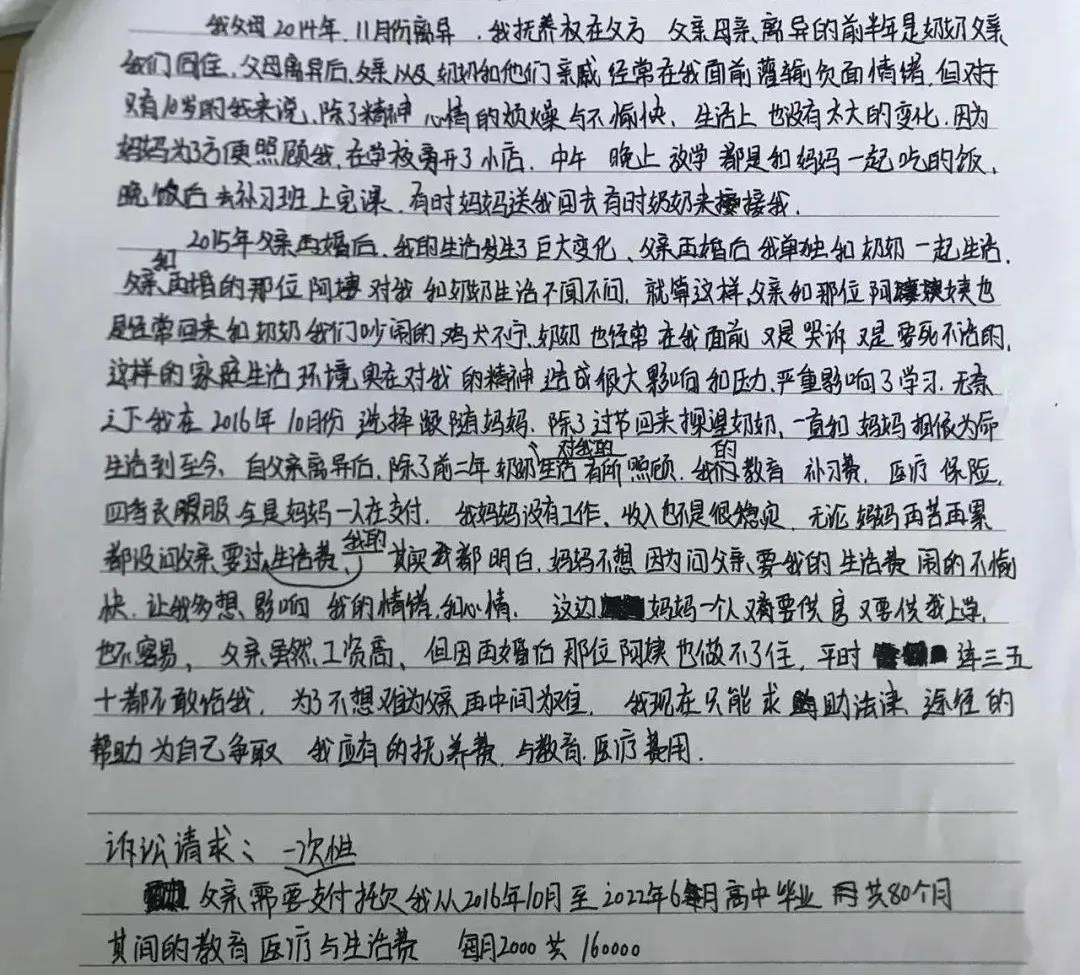 我父母2014年.11月份离异.我抚养权在父方 父亲母亲离异的前半年是奶奶父亲
我们同住.父母离异后.父亲以及奶奶和他们亲戚经常在我面前灌输负面情绪.但对于
只有10岁的我来说.除了精神 心情的烦燥与不愉快、生活上也没有太大的变化.因为
妈妈为了方便照顾我.在学校旁开了小店.中午 晚上 放学都是和妈妈一起吃的饭、
晚饭后去补习班上完课.有时妈妈送我回去有时奶奶来接我.
2015年父亲再婚后.我的生活发生了巨大变化、父亲再婚后我单独和奶奶一起生活.
父亲和再婚的那位阿姨对我和奶奶生活不闻不问.就算这样.父亲和那位阿姨也
是经常回来和奶奶我们吵闹的鸡犬不宁.奶奶也经常在我面前又是哭诉又是要死不活的.
这样的家庭生活环境.实在对我的精神造成很大影响和压力.严重影响了学习.无奈
之下我在2016年10月份选择跟随妈妈.除了过节回来探望奶奶.一直和妈妈相依为命
生活到至今、自父亲离异后.除了前二年奶奶对我的生活有所照顾.我的教育 补习费.医疗 保险.
四季衣服全是妈妈一人在支付.我妈妈没有工作、收入也不是很稳定.无论妈妈再苦再累
都没问父亲要过我的生活费、其实我都明白.妈妈不想因为问父亲要我的生活费闹的不愉
快.让我多想.影响我的情绪和心情. 这边妈妈一个人又需要供房又要供我上学.
也不容易、父亲虽然工资高、但因再婚后那位阿姨也做不了住.平时连三五
十都不敢给我.为了不想难为父亲再中间为难.我现在只能求助法律途径的
帮助为自己争取 我应有的抚养费.与教育.医疗费用.
诉讼请求:一次性
父亲需要支付拖欠我从2016年10月至2022年6月高中毕业 共80个月
其间的教育医疗与生活费 每月2000共160000